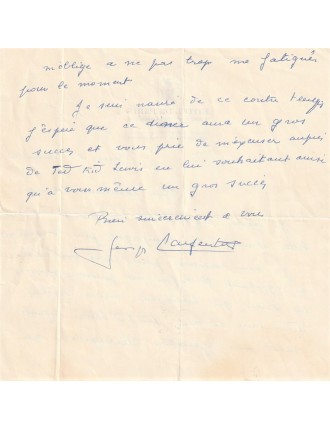 m'oblige a ne pas trop me fatiguer
pour le moment
Je suis navré de ce contre temps
j'espère que ce diner aura un gros
succès et vous prie de m'excuser auprès
de Ted Kid Lewis en lui souhaitant ainsi
qu'a vous même un gros succès
Bien sincèrement a vous
Georges Carpentier